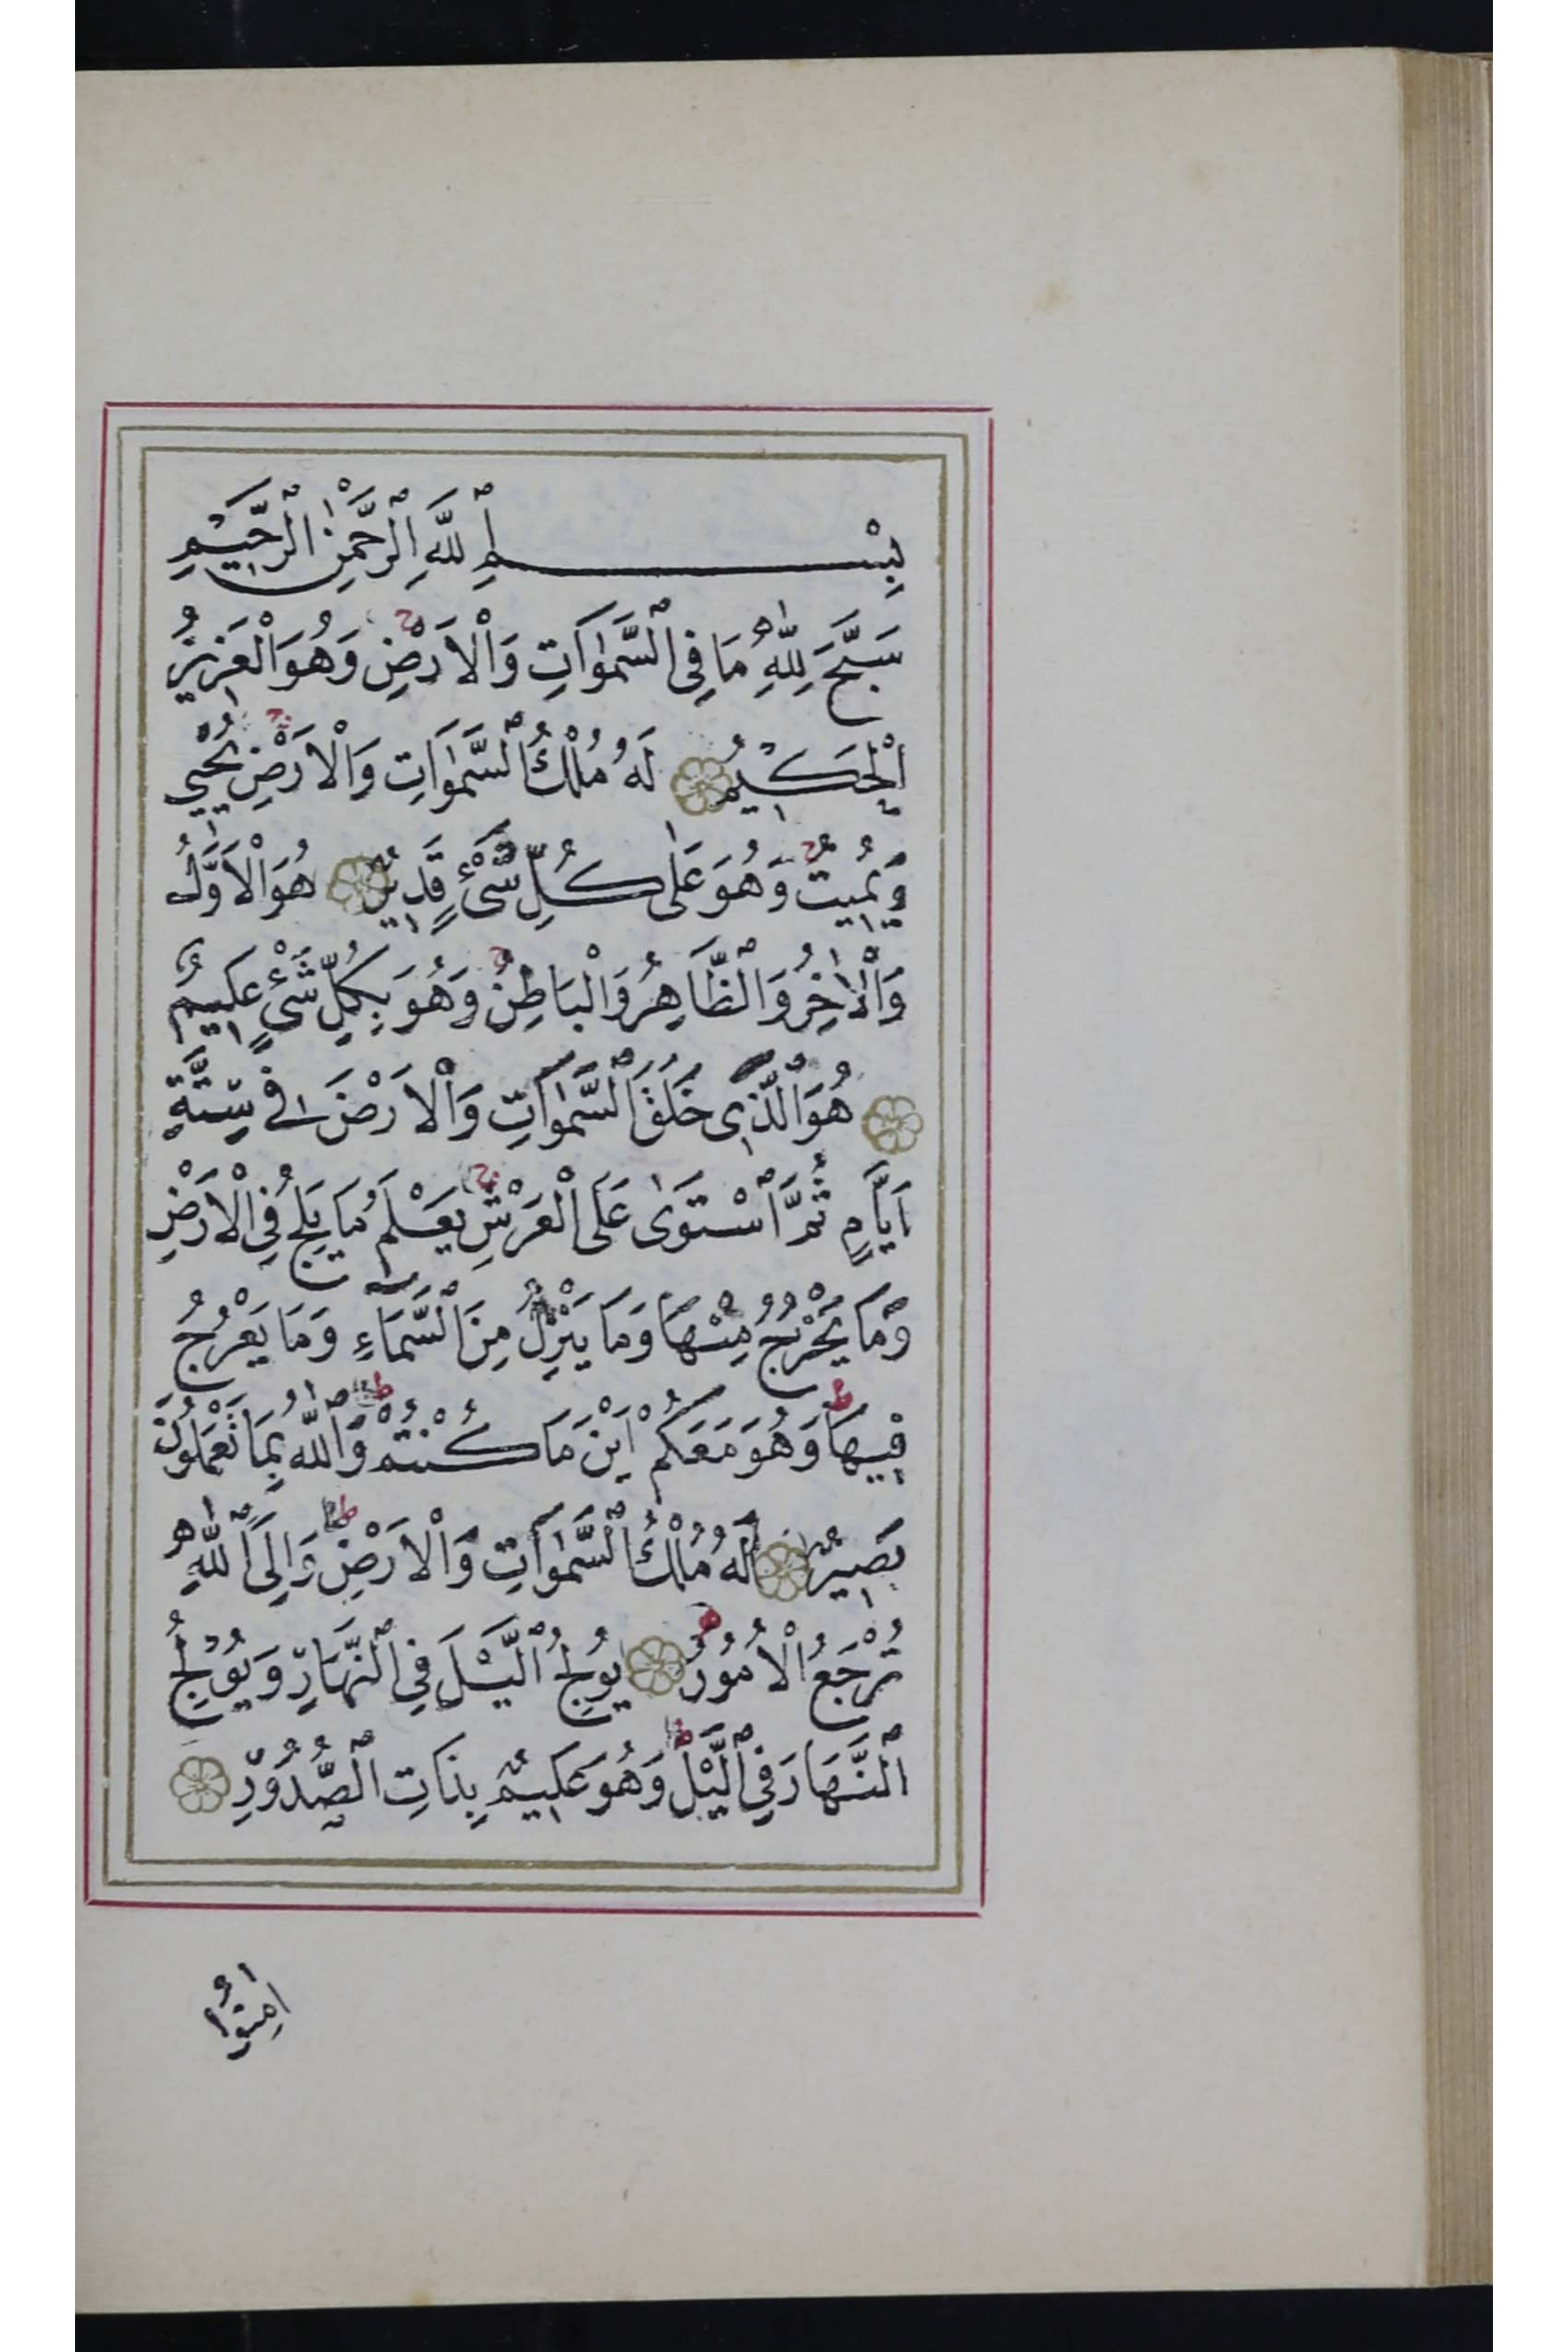 بِسْمِ ٱللَّهِ ٱلرَّحْمٰنِ ٱلرَّحِيْمِ
سَبَّحَ لِلّٰهِ مَا فِى ٱلسَّمٰوَاتِ وَٱلْاَرْضِ وَهُوَ ٱلْعَزِيزُ
اَلْحَكِيْمُ لَهُ مُلْكُ ٱلسَّمٰوَاتِ وَٱلْاَرْضِ يُحْيِي
وَيُمِيتُ وَهُوَ عَلٰى كُلِّ شَىْءٍ قَدِيرٌ هُوَ ٱلْاَوَّلُ
وَٱلْاٰخِرُ وَٱلظَّاهِرُ وَٱلْبَاطِنُ وَهُوَ بِكُلِّ شَىْءٍ عَلِيمٌ
هُوَ ٱلَّذِى خَلَقَ ٱلسَّمٰوَاتِ وَٱلْاَرْضَ فِى سِتَّةِ
اَيَّامٍ ثُمَّ ٱسْتَوٰى عَلَى ٱلْعَرْشِ يَعْلَمُ مَا يَلِجُ فِى ٱلْاَرْضِ
وَمَا يَخْرُجُ مِنْهَا وَمَا يَنْزِلُ مِنَ ٱلسَّمَاءِ وَمَا يَعْرُجُ
فِيهَا وَهُوَ مَعَكُمْ اَيْنَ مَا كُنْتُمْ وَٱللّٰهُ بِمَا تَعْمَلُونَ
بَصِيرٌ لَهُ مُلْكُ ٱلسَّمٰوَاتِ وَٱلْاَرْضِ وَاِلَى ٱللّٰهِ
تُرْجَعُ ٱلْاُمُورُ يُولِجُ ٱلَّيْلَ فِى ٱلنَّهَارِ وَيُوْلِجُ
ٱلنَّهَارَ فِى ٱلَّيْلِ وَهُوَ عَلِيمٌ بِذَاتِ ٱلصُّدُوْرِ
اٰمِنُوا